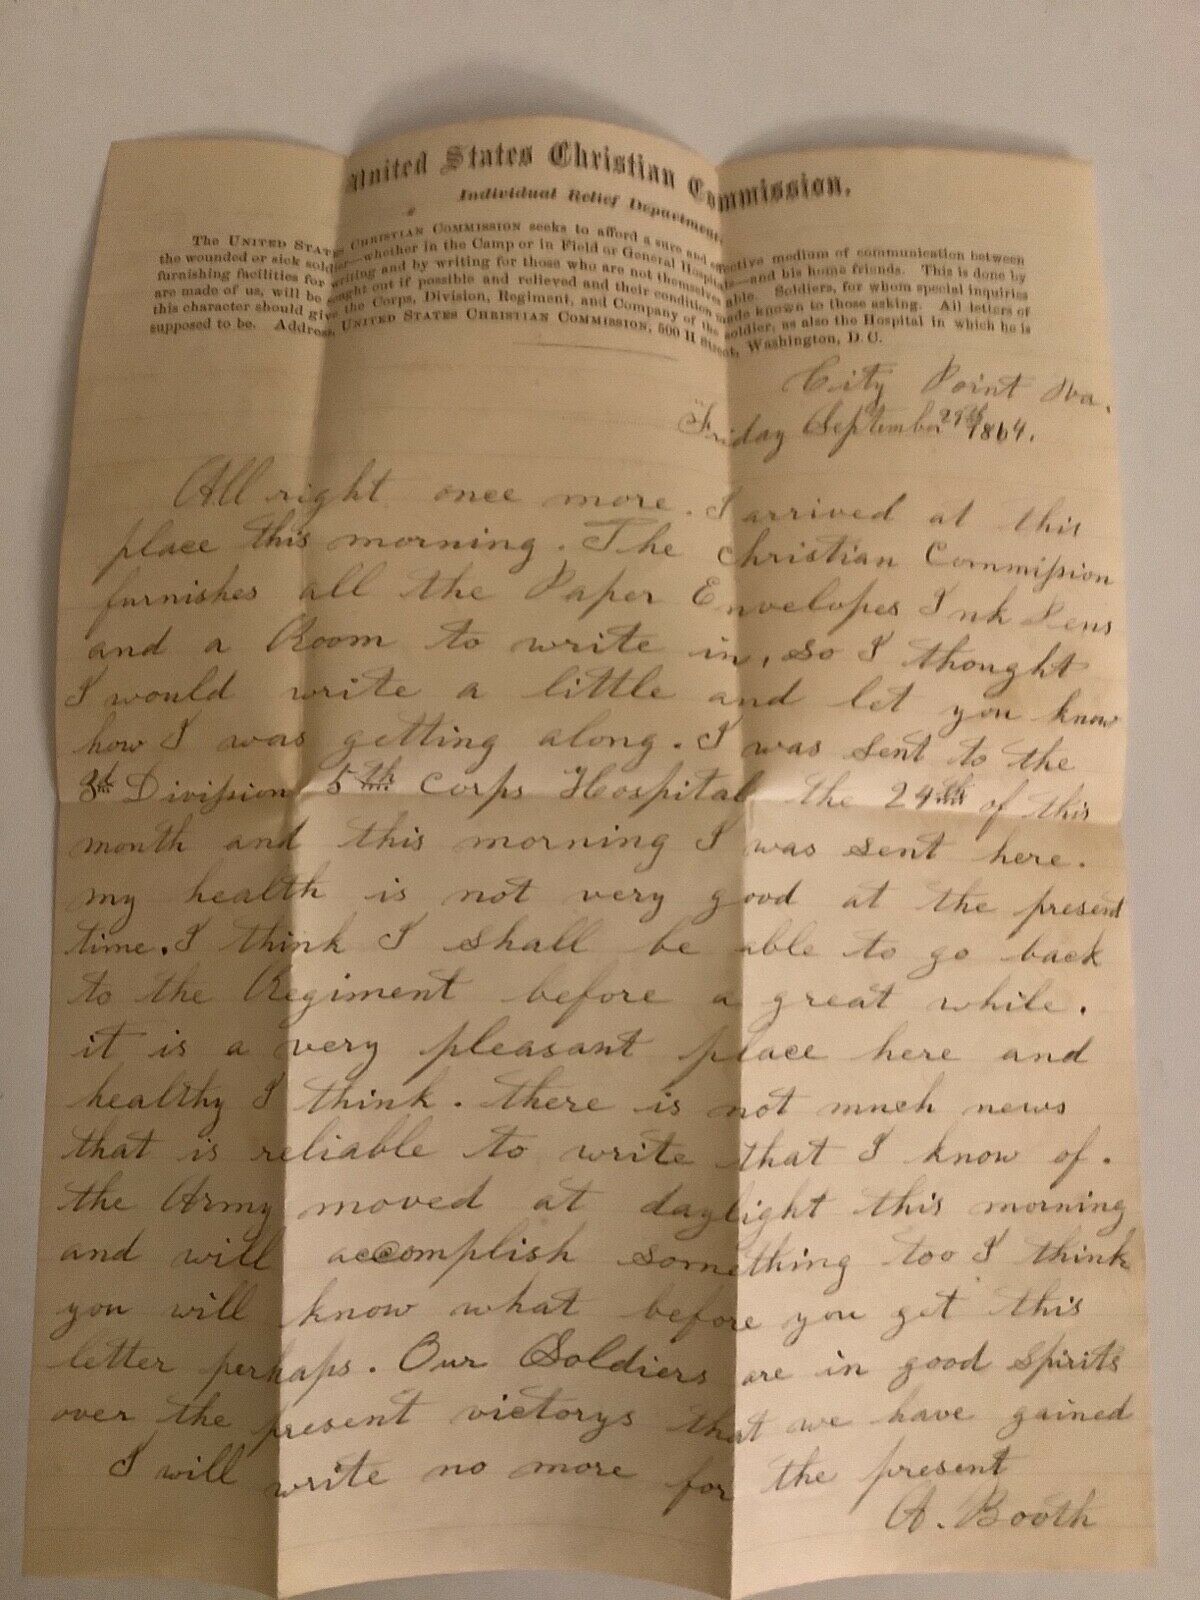 United States Christian Commission.
Individual Relief Department.
The UNITED STATES CHRISTIAN COMMISSION seeks to afford a sure and effective medium of communication between
the wounded or sick soldier—whether in the Camp or in Field or General Hospitals—and his home friends. This is done by
furnishing facilities for writing and by writing for those who are not themselves able. Soldiers, for whom special inquiries
are made of us, will be sought out if possible and relieved and their condition made known to those asking. All letters of
this character should give the Corps, Division, Regiment, and Company of the soldier, as also the Hospital in which he is
supposed to be. Address, UNITED STATES CHRISTIAN COMMISSION, 500 H Street, Washington, D. C.
City Point Va.
Friday September 29th 1864.
All right once more. I arrived at this
place this morning. The Christian Commission
furnishes all the Paper Envelopes Ink Pens
and a Room to write in, so I thought
I would write a little and let you know
how I was getting along. I was sent to the
3d Division 5th Corps Hospital, the 24th of this
month and this morning I was sent here.
my health is not very good at the present
time. I think I shall be able to go back
to the Regiment before a great while.
it is a very pleasant place here and
healthy I think. there is not much news
that is reliable to write that I know of.
the Army moved at daylight this morning
and will accomplish something too I think
you will know what before you get this
letter perhaps. Our Soldiers are in good spirits
over the present victorys that we have gained
I will write no more for the present
A. Booth